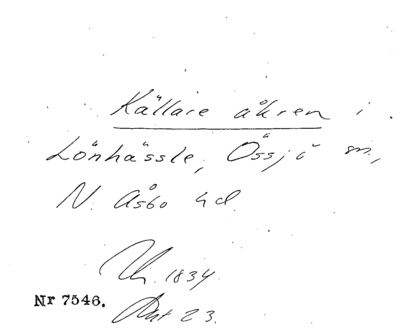 Källare åkren i
Lönhässle, Össjö sn.,
N. Åsbo hd.
Uh. 1834.
Nr 7546.
Akt 23.